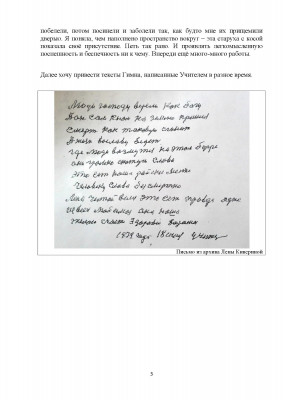 побелели, потом посинели и заболели так, как будто мне их прищемили
дверью. Я поняла, чем наполнено пространство вокруг – эта старуха с косой
показала своё присутствие. Петь так рано. И проявлять легкомысленную
поспешность и беспечность ни к чему. Впереди ещё много-много работы.
Далее хочу привести тексты Гимна, написанные Учителем в разное время.
Люди господу верили как богу
Он сам к нам на землю пришел
Смерть как таковую
Жизнь во славу
где люди возьмут на этом
они громко скажут слова
Это есть наше райское место
Человеку слава бессмертие
1978 года 18
Письмо из архива Лены Кивериной
5